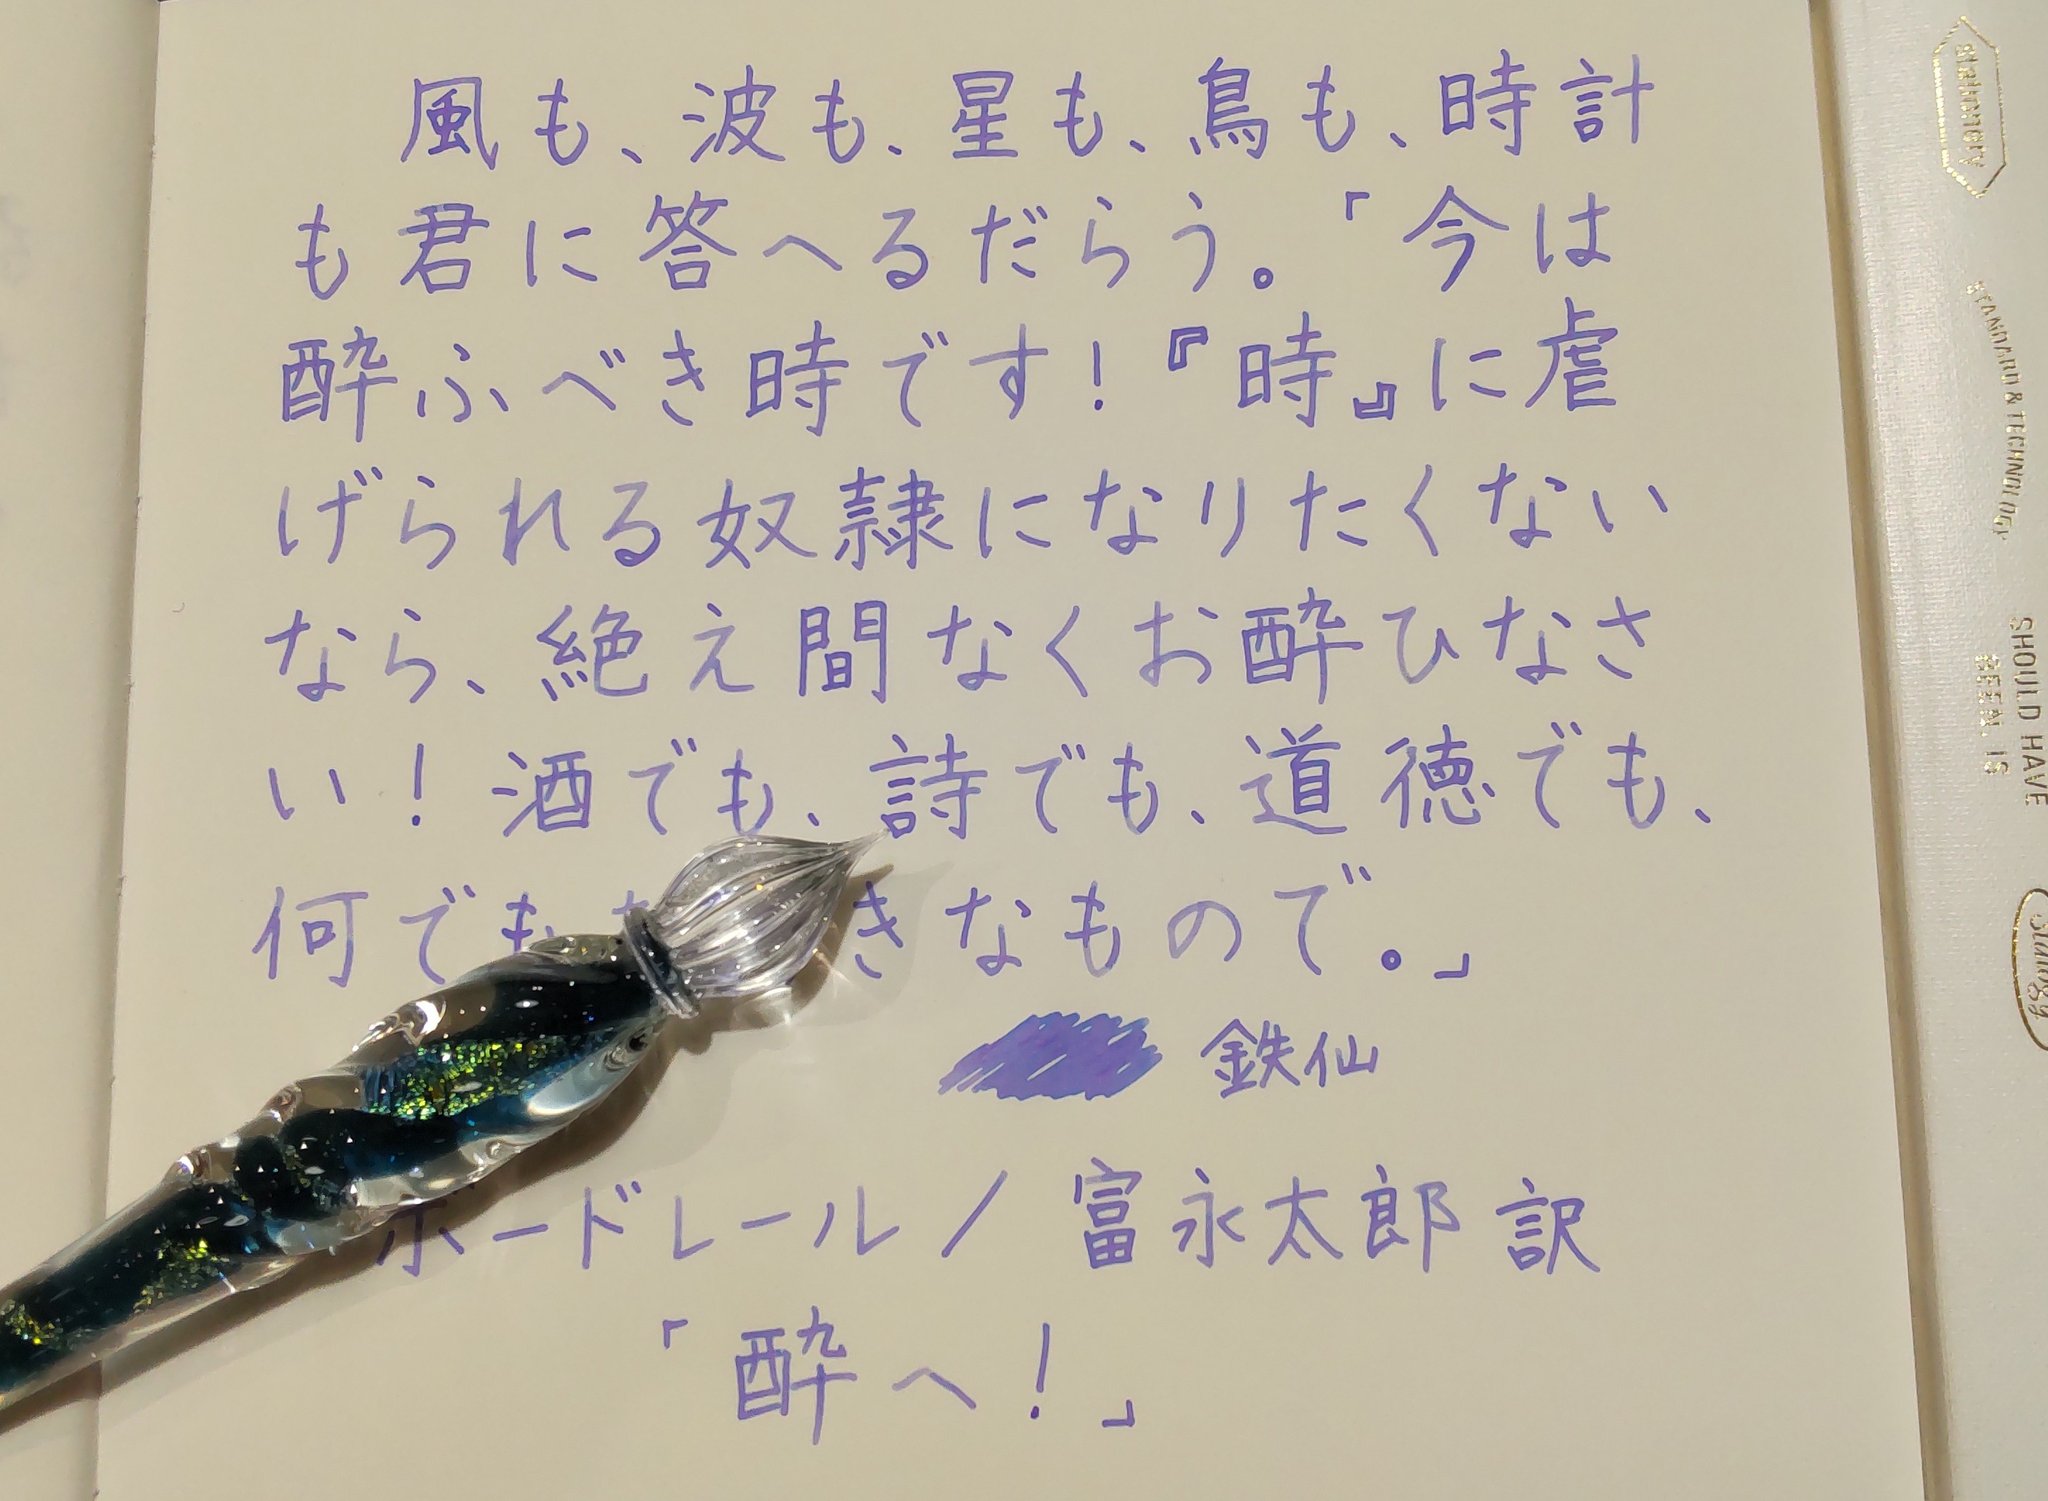 風も、波も、星も、鳥も、時計
も君に答へるだらう。「今は
酔ふべき時です！『時』に虐
げられる奴隷になりたくない
なら、絶え間なくお酔ひなさ
い！酒でも、詩でも、道徳でも、
何でも きなもので。」
鉄仙
ボードレール／富永太郎訳
「酔へ！」
Stalinery
STANDARD & TECHNOLOGY
SHOULD HAVE
BEEN. IS